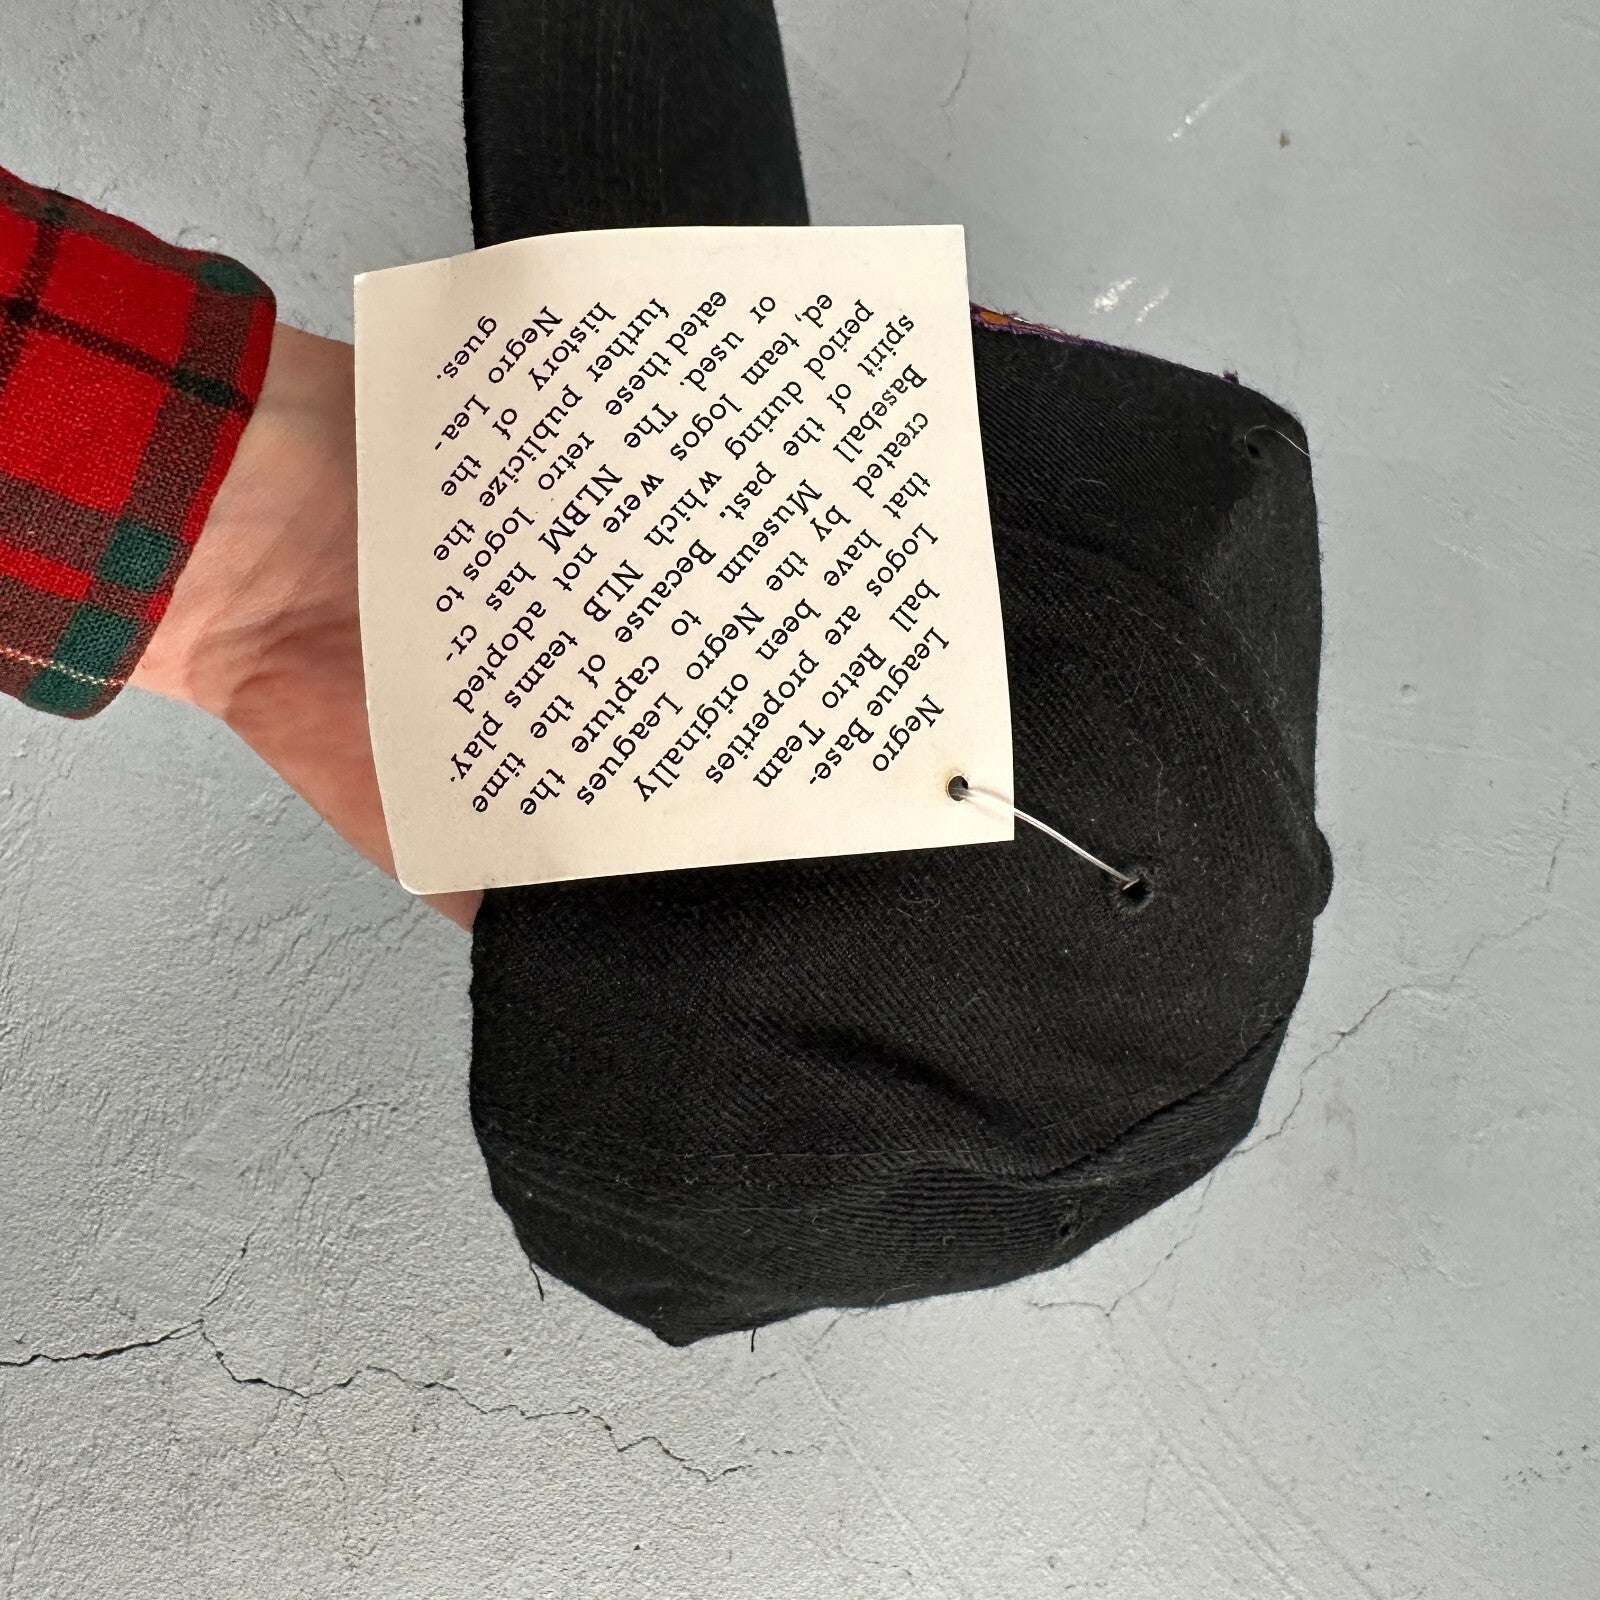 Negro
League Base-
ball Retro Team
Logos are properties
that have been originally
created by the Negro Leagues
Baseball Museum to capture the
spirit of the past. Because of the time
period during which NLB teams play-
ed, team logos were not adopted
or used. The NLBM has cr-
eated these retro logos to
further publicize the
history of the
Negro Lea-
gues.